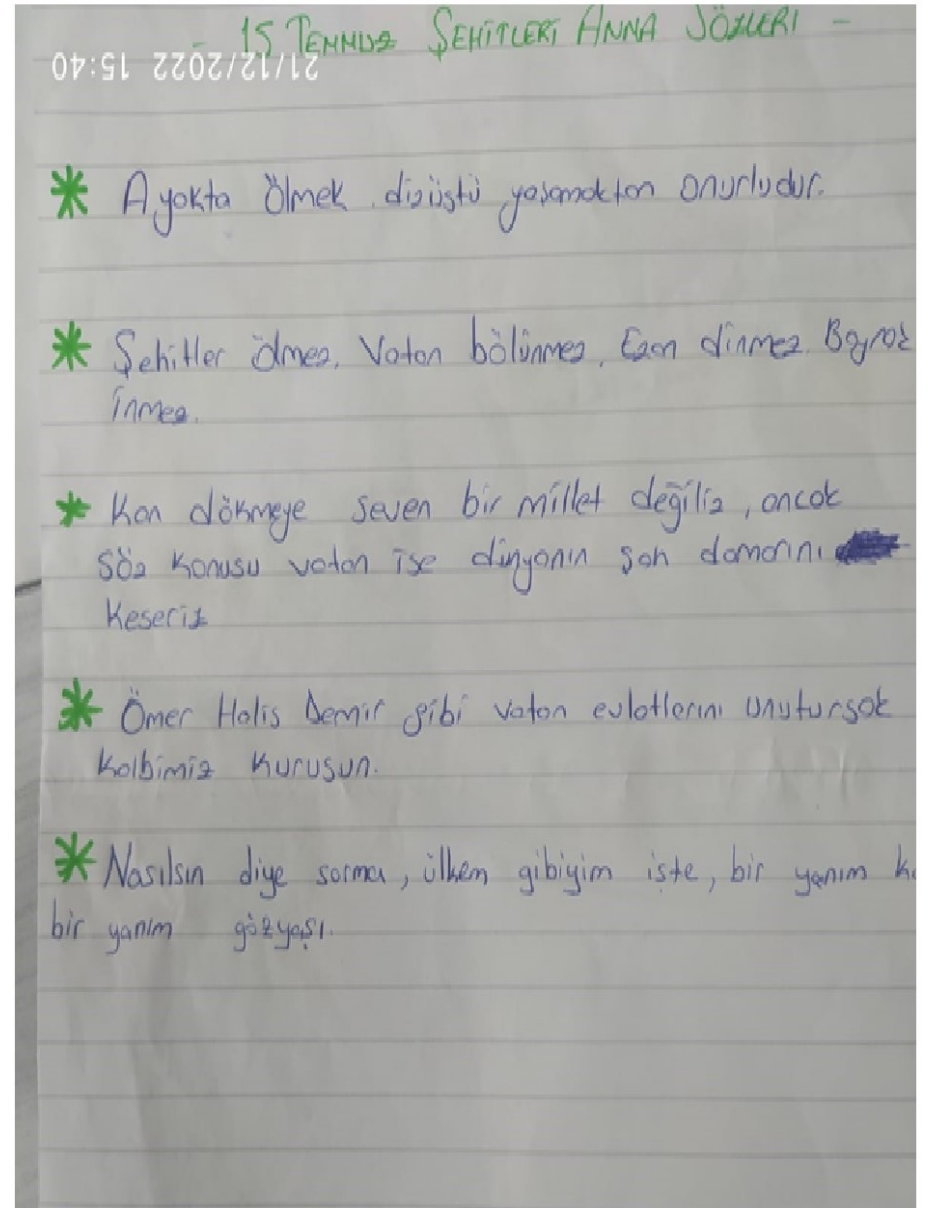 - 15 TEMMUZ ŞEHİTLERİ ANNA SÖZLERİ -
21/12/2022 15:40
* Ayakta ölmek dizüstü yaşamaktan onurludur.
* Şehitler ölmez, Vatan bölünmez, Ezan dinmez Bayrak
inmez.
* Kan dökmeye seven bir millet değiliz, ancak
söz konusu vatan ise dünyanın şah damarını
keseriz
* Ömer Halis Demir gibi vatan evlatlarını unutursak
kalbimiz kurusun.
* Nasılsın diye sorma, ülkem gibiyim işte, bir yanım
bir yanım gözyaşı.